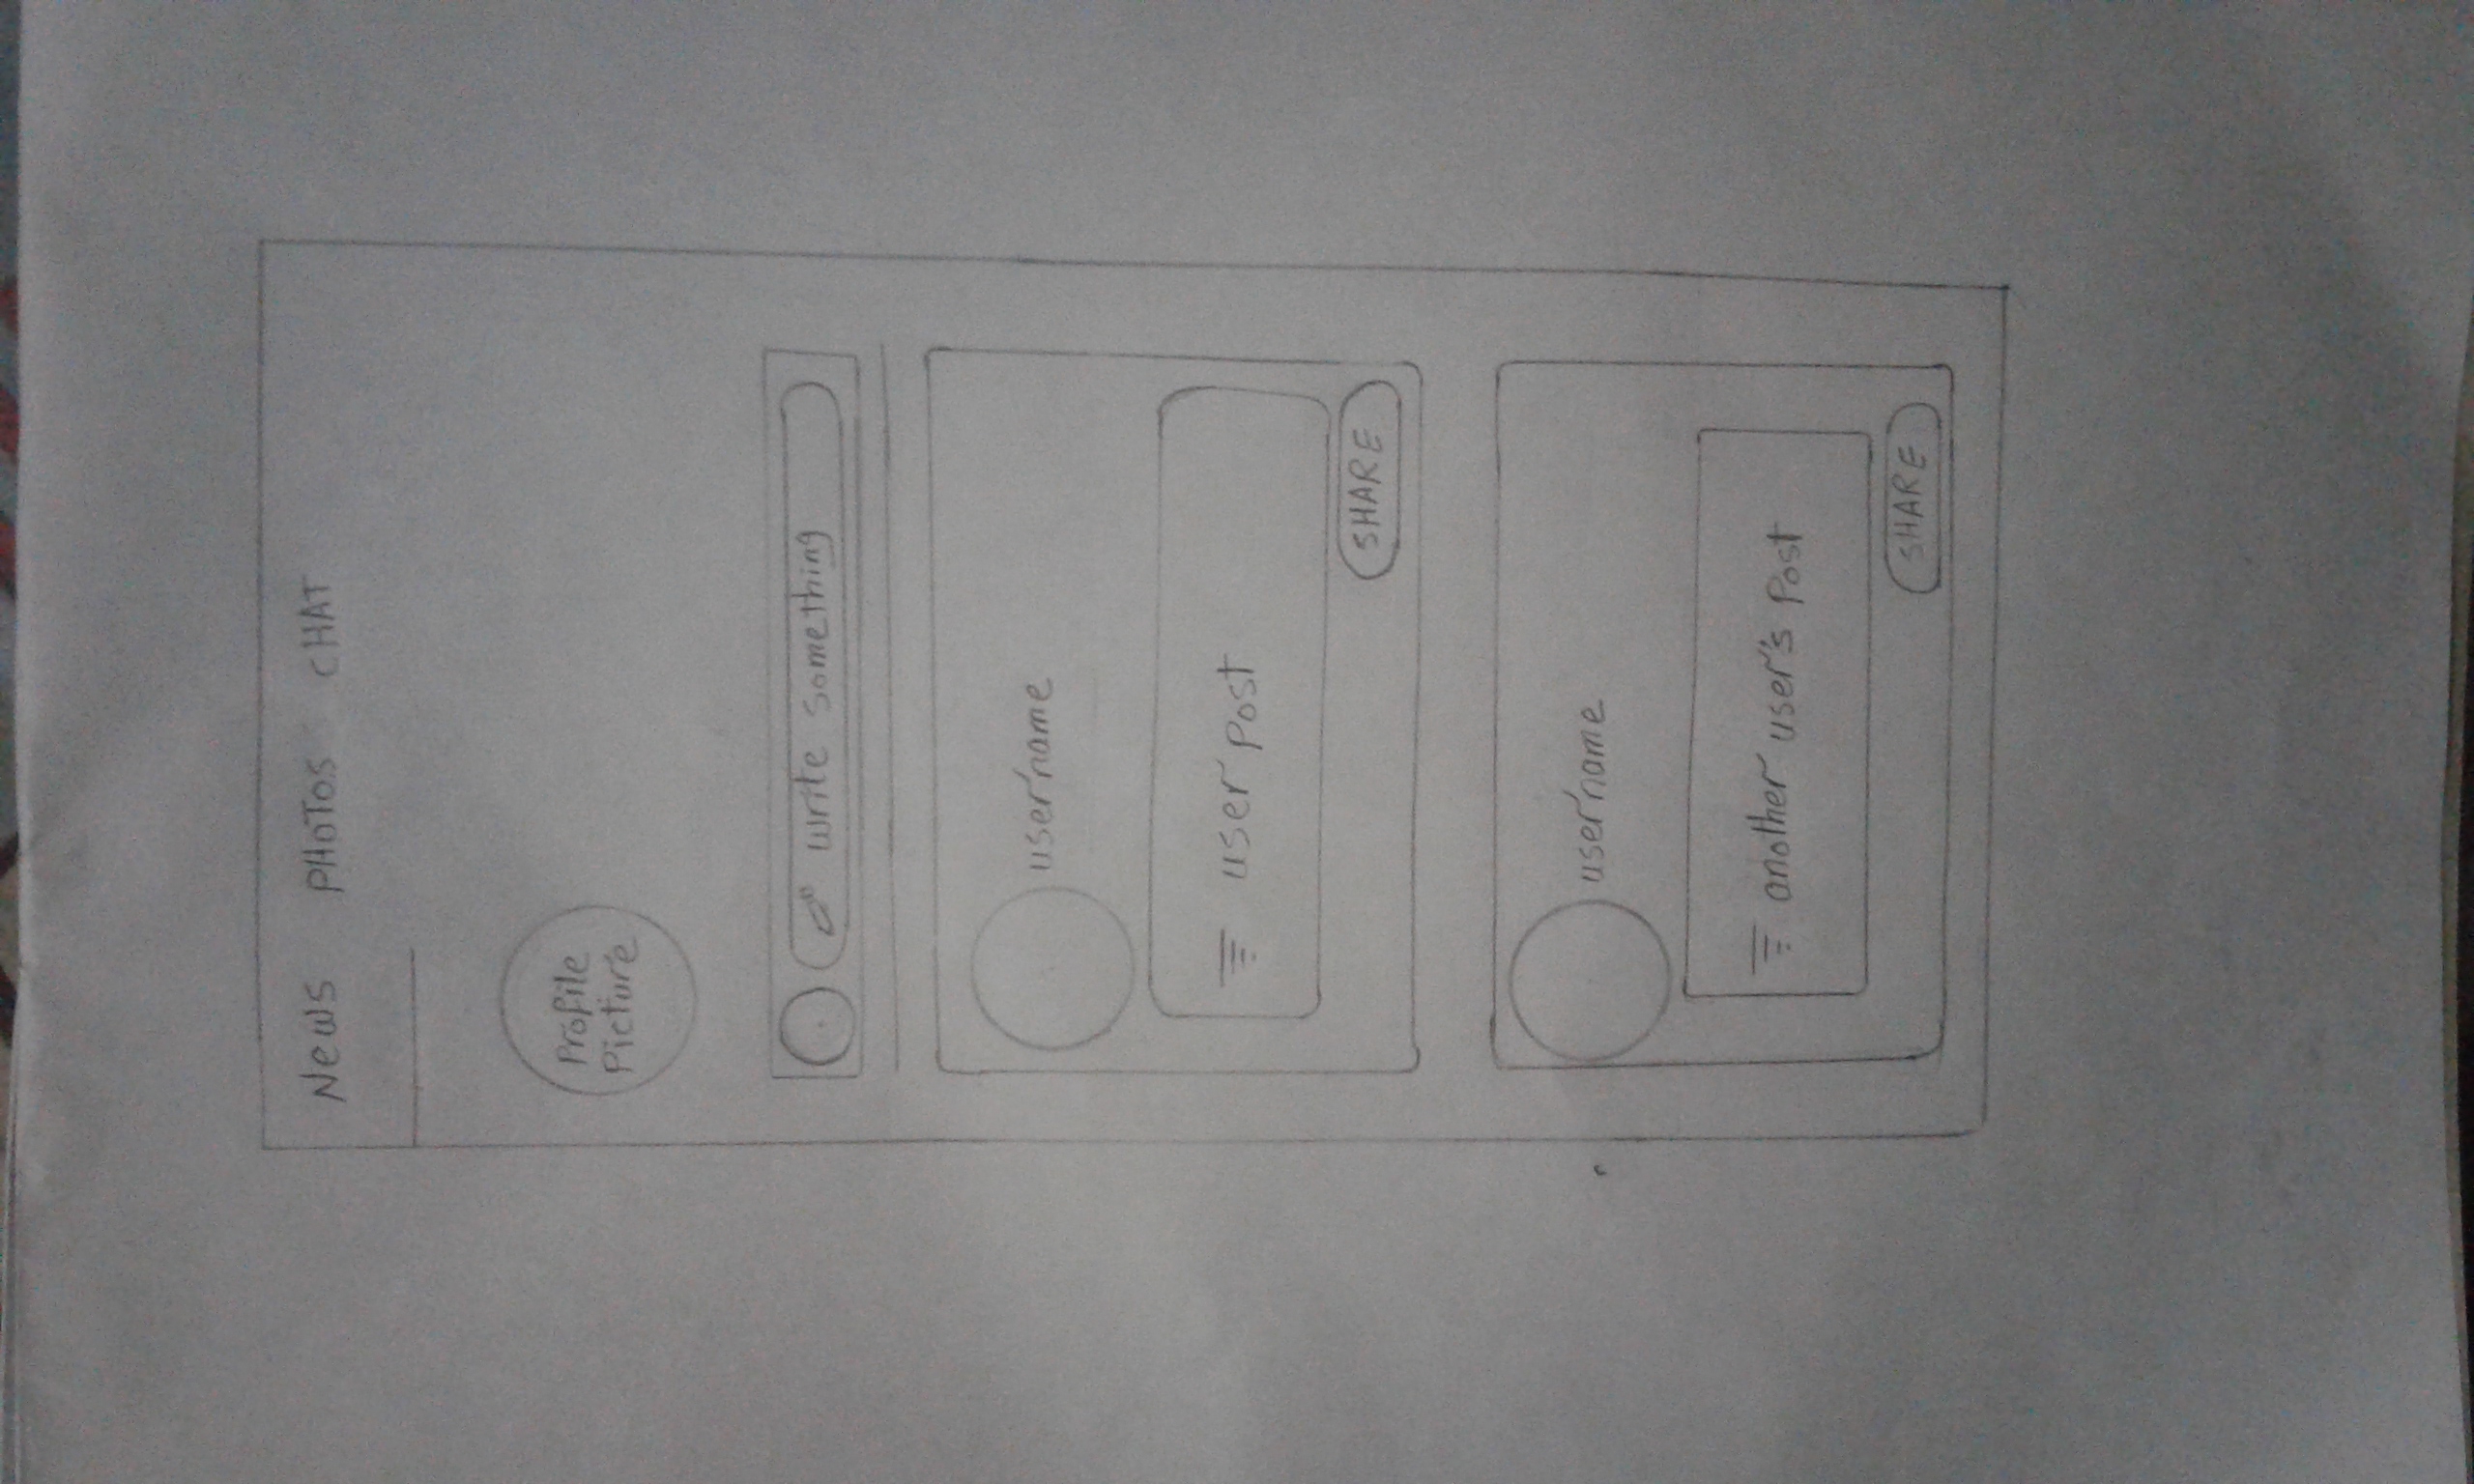 News PHOTOS CHAT
Profile
Picture
write something
username
user post
SHARE
username
another user's post
SHARE